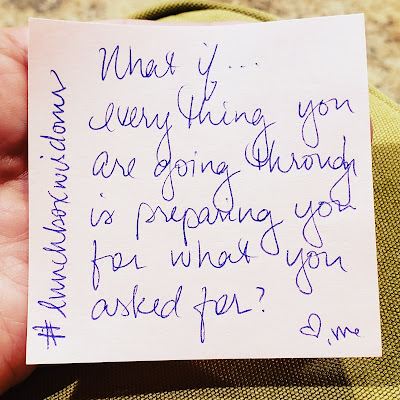 What if...
everything you
are going through
is preparing you
for what you
asked for?
♡, me
#lunchboxwisdoms